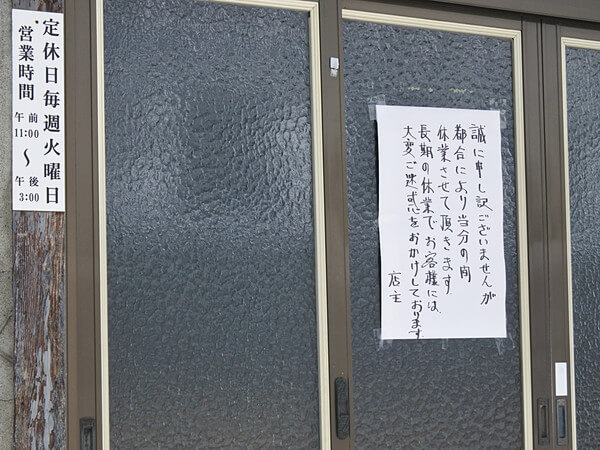 定休日毎週火曜日
営業時間 午前11:00〜午後3:00
誠に申し訳ございませんが
都合により当分の間
休業させて頂きます
長期の休業でお客様には
大変ご迷惑をおかけしております
店主